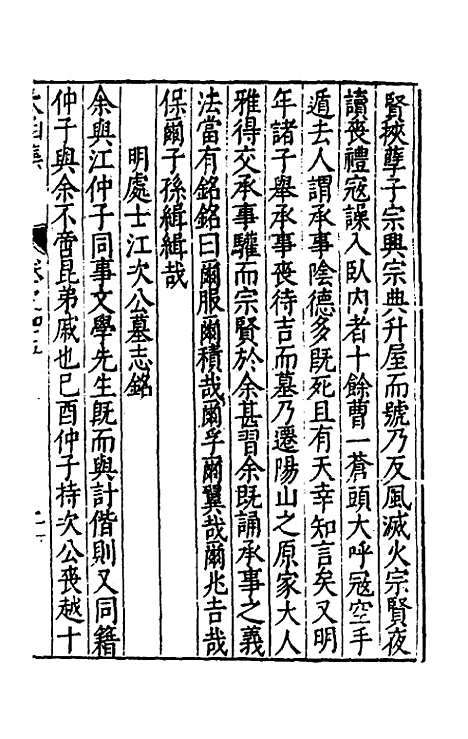 賢挾孽子宗興宗典升屋而號乃反風滅火宗賢夜
讀喪禮寇譟入臥內者十餘曹一蒼頭大呼寇空手
遁去人謂承事陰德多既死且有天幸知言矣又明
年諸子舉承事喪待吉而墓乃遷陽山之原家大人
雅得交承事驩而宗賢於余甚習余既誦承事之義
法當有銘銘曰爾服爾積哉爾孚爾翼哉爾兆吉哉
保爾子孫緝緝哉
明處士江次公墓志銘
余與江仲子同事文學先生既而與計偕則又同籍
仲子與余不啻昆弟戚也己酉仲子持次公喪越十
太函集 卷之四五